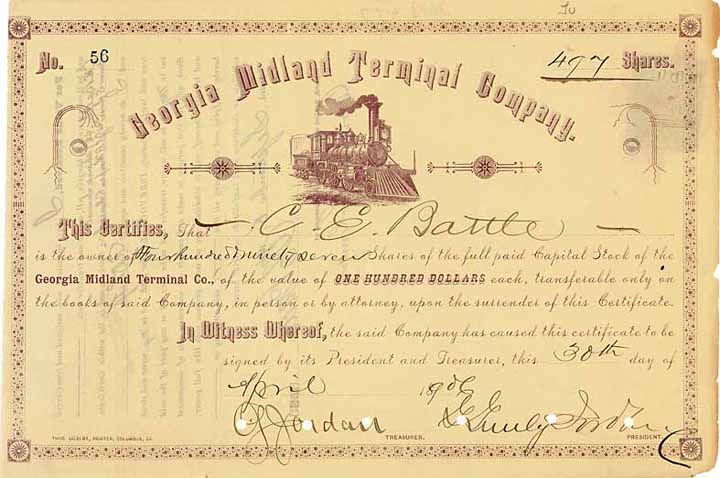 No. 56
497 Shares.
Georgia Midland Terminal Company.
This Certifies, That C. E. Battle
is the owner of Four hundred & ninety seven Shares of the full paid Capital Stock of the
Georgia Midland Terminal Co., of the value of ONE HUNDRED DOLLARS each, transferable only on
the books of said Company, in person or by attorney, upon the surrender of this Certificate.
In Witness Whereof, the said Company has caused this certificate to be
signed by its President and Treasurer, this 30th day of
April 1906
Jordan
Jordan
THOS. GILBERT, PRINTER, COLUMBUS, GA.
TREASURER.
PRESIDENT.